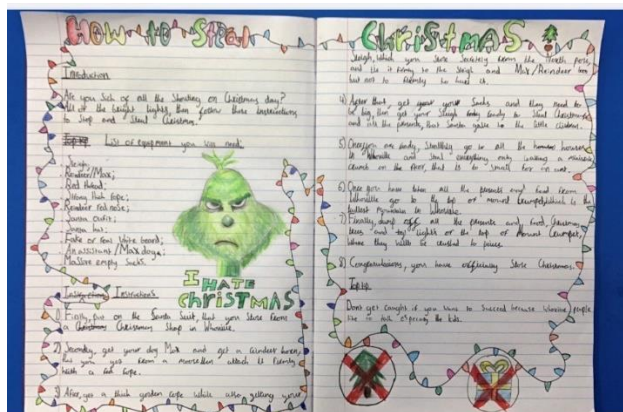 How to Steal
Introduction
Are you Sick of all the Shouting on Christmas day?
All of the bright lights then follow these instructions
to Stop and Steal Christmas.
List of equipment you will need:
Sleigh;
Reindeer/Max;
Red thread;
Strong thick rope;
Reindeer red nose;
Santa outfit;
Santa hat;
Fake or real white beard;
An assistant / Max doggo;
Massive empty sacks.
I
HATE
CHRISTMAS
Instructions
1) Firstly, put on the Santa Suit, that you Stole from
a Christmas Shop in Whoville.
2) Secondly, get your dog Max and get a reindeer horn,
that you got from a attach it firmly
with a red rope.
3) After, get a thick golden rope while also getting your
CHRISTMAS
Sleigh, which you Stole Secretly from the North pole,
and tie it firmly to the Sleigh and Max/Reindeer
but not to firmly to hurt it.
4) After that get your Sacks and they need to
be big, then get your Sleigh ready to Steal Christmas
and all the presents, that Santa gave to the little children.
5) Once you are ready, Stealthily go to all the houses
in Whoville and Steal everything only leaving a
crumb on the floor, that is to Small for
6) Once you have taken all the presents and food from
Whoville go to the top of mount Crumpet, which is the
tallest mountain in Whoville.
7) Finally, all the presents and food, Christmas
trees and lights on the top of Mount Crumpet,
where they will be crushed to pieces.
8) Congratulations, you have officially Stole Christmas.
Top tip
Dont get caught if you want to Succeed because Whoville people
like to talk especially the kids.